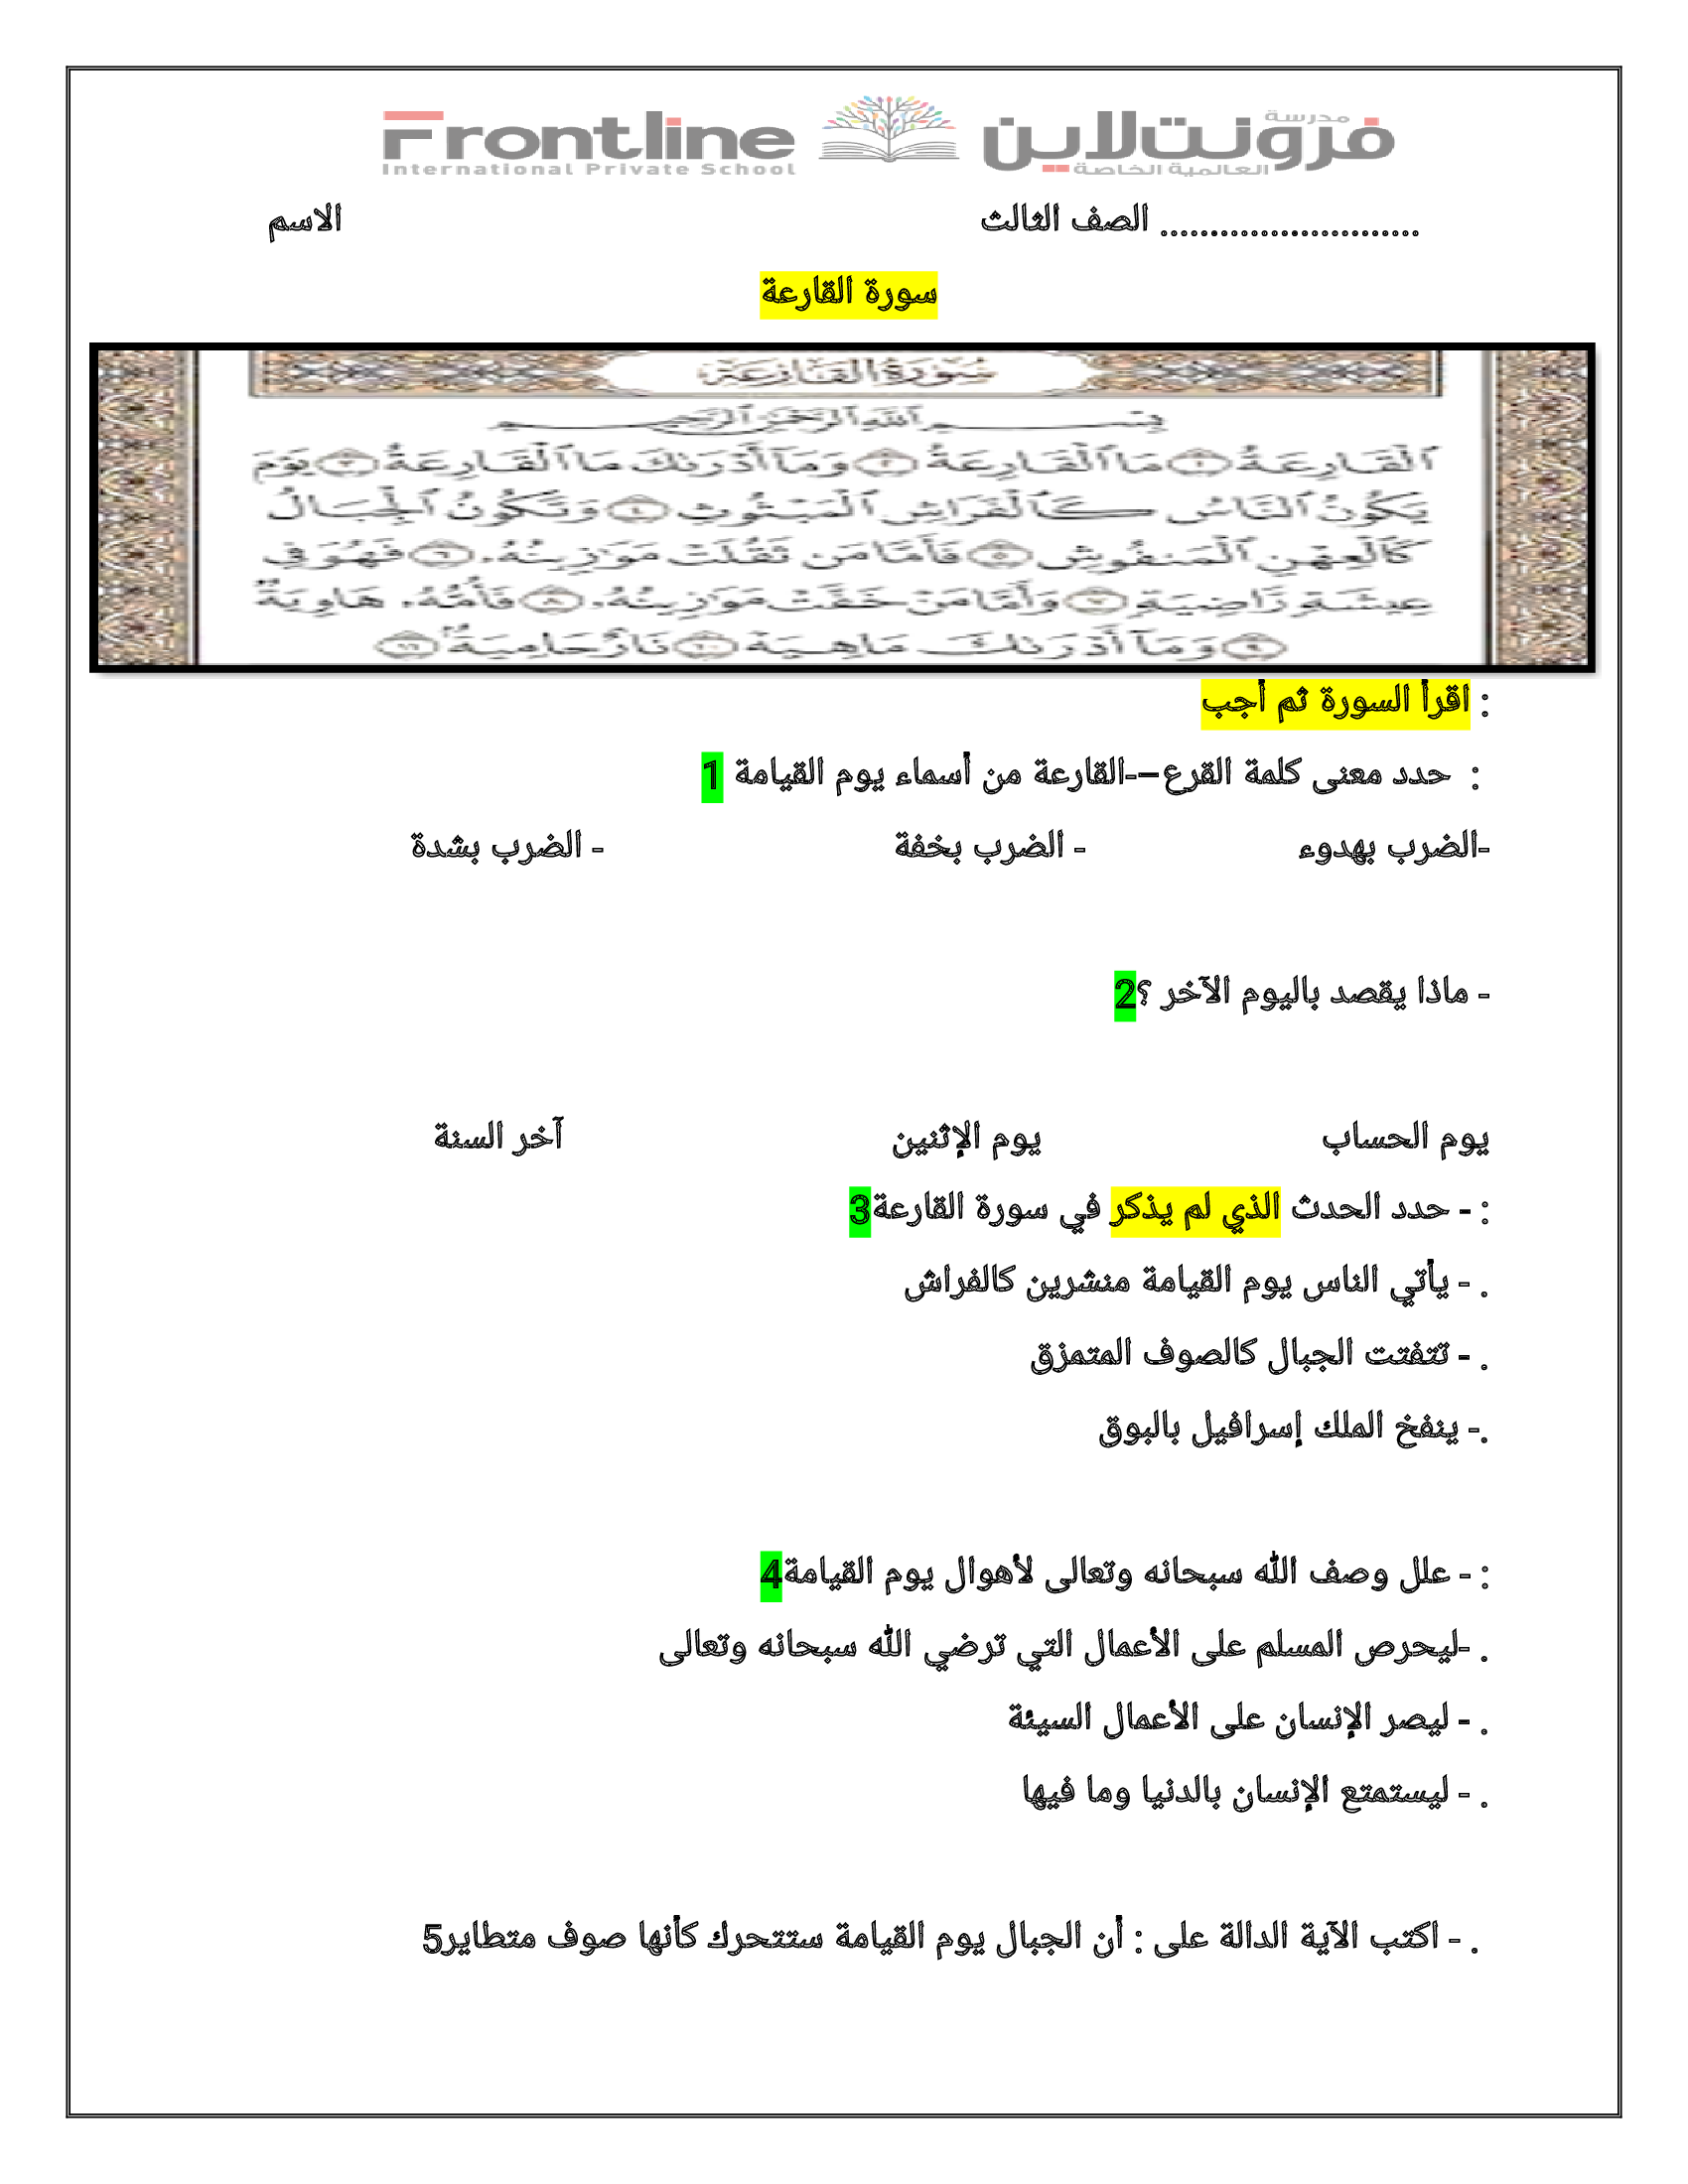 Frontline
International Private School
مدرسة
فرونتلاين
العالمية الخاصة
الاسم .......................... الصف الثالث
سورة القارعة
سُورَةُ القَارِعَةِ
بِسْمِ ٱللَّهِ ٱلرَّحْمَٰنِ ٱلرَّحِيمِ
ٱلْقَارِعَةُ ١ مَا ٱلْقَارِعَةُ ٢ وَمَآ أَدْرَىٰكَ مَا ٱلْقَارِعَةُ ٣ يَوْمَ
يَكُونُ ٱلنَّاسُ كَٱلْفَرَاشِ ٱلْمَبْثُوثِ ٤ وَتَكُونُ ٱلْجِبَالُ
كَٱلْعِهْنِ ٱلْمَنفُوشِ ٥ فَأَمَّا مَن ثَقُلَتْ مَوَٰزِينُهُۥ ٦ فَهُوَ فِي
عِيشَةٍ رَّاضِيَةٍ ٧ وَأَمَّا مَنْ خَفَّتْ مَوَٰزِينُهُۥ ٨ فَأُمُّهُۥ هَاوِيَةٌ
٩ وَمَآ أَدْرَىٰكَ مَا هِيَهْ ١٠ نَارٌ حَامِيَةٌ ١١
اقرأ السورة ثم أجب :
1 حدد معنى كلمة القرع–-القارعة من أسماء يوم القيامة :
-الضرب بهدوء - الضرب بخفة - الضرب بشدة
2- ماذا يقصد باليوم الآخر ؟
يوم الحساب يوم الإثنين آخر السنة
3- حدد الحدث الذي لم يذكر في سورة القارعة :
- يأتي الناس يوم القيامة منشرين كالفراش .
- تتفتت الجبال كالصوف المتمزق .
- ينفخ الملك إسرافيل بالبوق.
4- علل وصف الله سبحانه وتعالى لأهوال يوم القيامة :
-ليحرص المسلم على الأعمال التي ترضي الله سبحانه وتعالى .
- ليصر الإنسان على الأعمال السيئة .
- ليستمتع الإنسان بالدنيا وما فيها .
5- اكتب الآية الدالة على : أن الجبال يوم القيامة ستتحرك كأنها صوف متطاير .